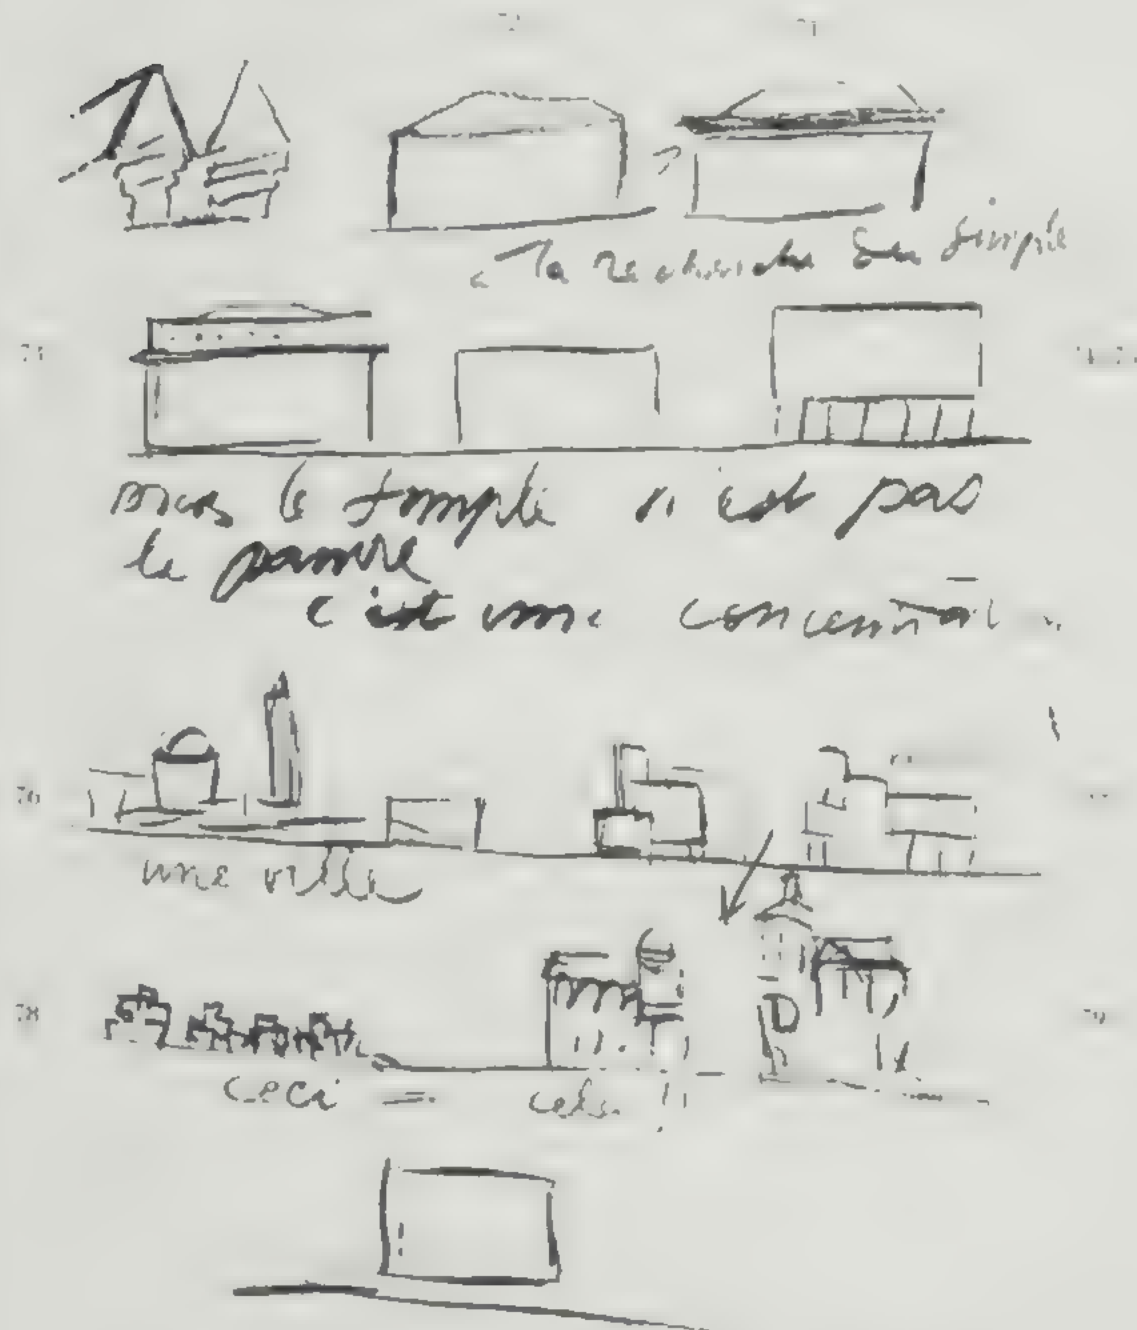 à la recherche du simple
mais le simple n'est pas
le pauvre
c'est une
76
une ville
78
ceci = cela